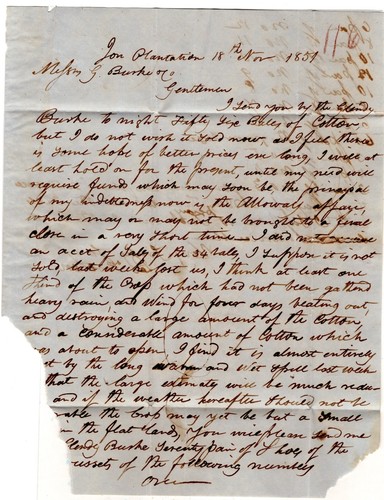 Jon Plantation 18th Nov 1851
Messrs G Burke & Co
Gentlemen
I send you by the Glendy
Burke to night Fifty Six Bales of Cotton,
but I do not wish it sold now, as I feel there
is some hope of better prices ere long, I will at
least hold on for the present, until my need will
require funds which may soon be, the principal
of my indebtedness now is the affair,
which may or may not be brought to a final
close in a very short time. I did
an acct of Sales of the 34 Bales, I suppose it is not
sold, last week cost us, I think at least one
third of the Crop which had not been gathered
heavy rain and Wind for four days beating out,
and destroying a large amount of the Cotton,
and a considerable amount of Cotton which
was about to open, I find it is almost entirely
by the long warm and Wet Spell last week
that the large estimates will be much redu
and if the weather hereafter should not be
rable the Crop may yet be but a Small
in the flat lands, You will please send me
Glendy Burke Seventy pair of Shoes of the
russets of the following numbers
over